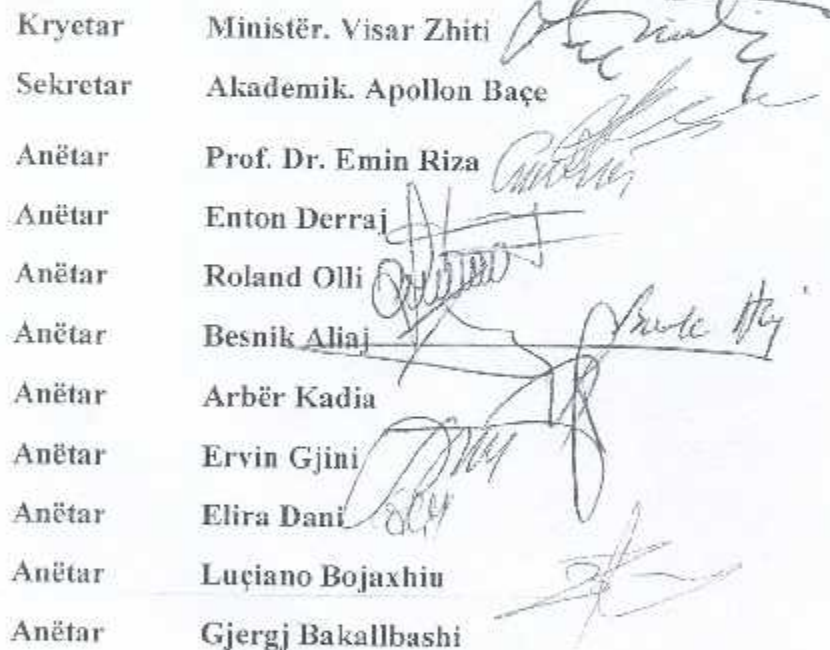 Kryetar Ministër. Visar Zhiti
Sekretar Akademik. Apollon Baçe
Anëtar Prof. Dr. Emin Riza
Anëtar Enton Derraj
Anëtar Roland Olli
Anëtar Besnik Aliaj
Anëtar Arbër Kadia
Anëtar Ervin Gjini
Anëtar Elira Dani
Anëtar Luçiano Bojaxhiu
Anëtar Gjergj Bakallbashi